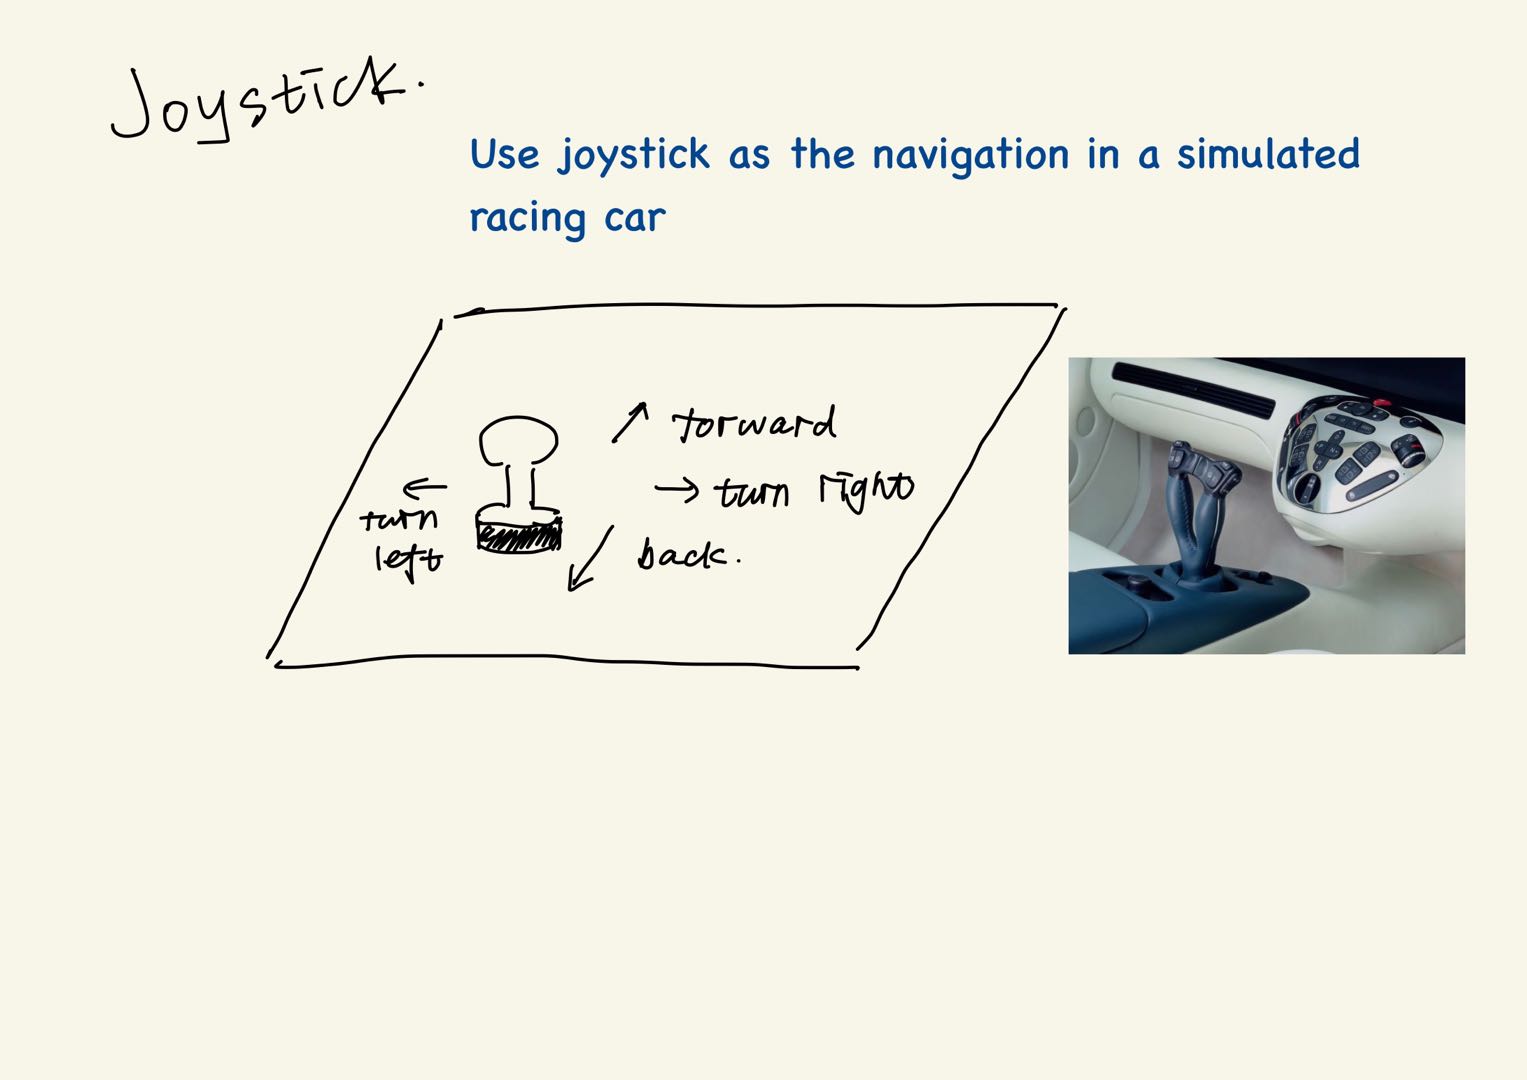 Joystick.
Use joystick as the navigation in a simulated
racing car
forward
turn right
turn
left
back.